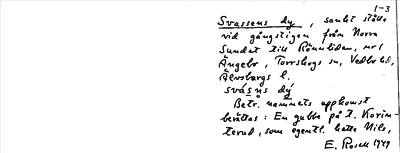 1-3
Svassens dy, sankt ställe
vid gångstigen från Norra
Sundet till Rönnliden, nr 1
Ängebo, Torrskogs sn, Vedbo hd,
Älvsborgs l.
svásns dý
Betr. namnets uppkomst
berättas: En gubbe på t. Korin-
terud, som egentl. hette Nils,
E. Rosell 1949